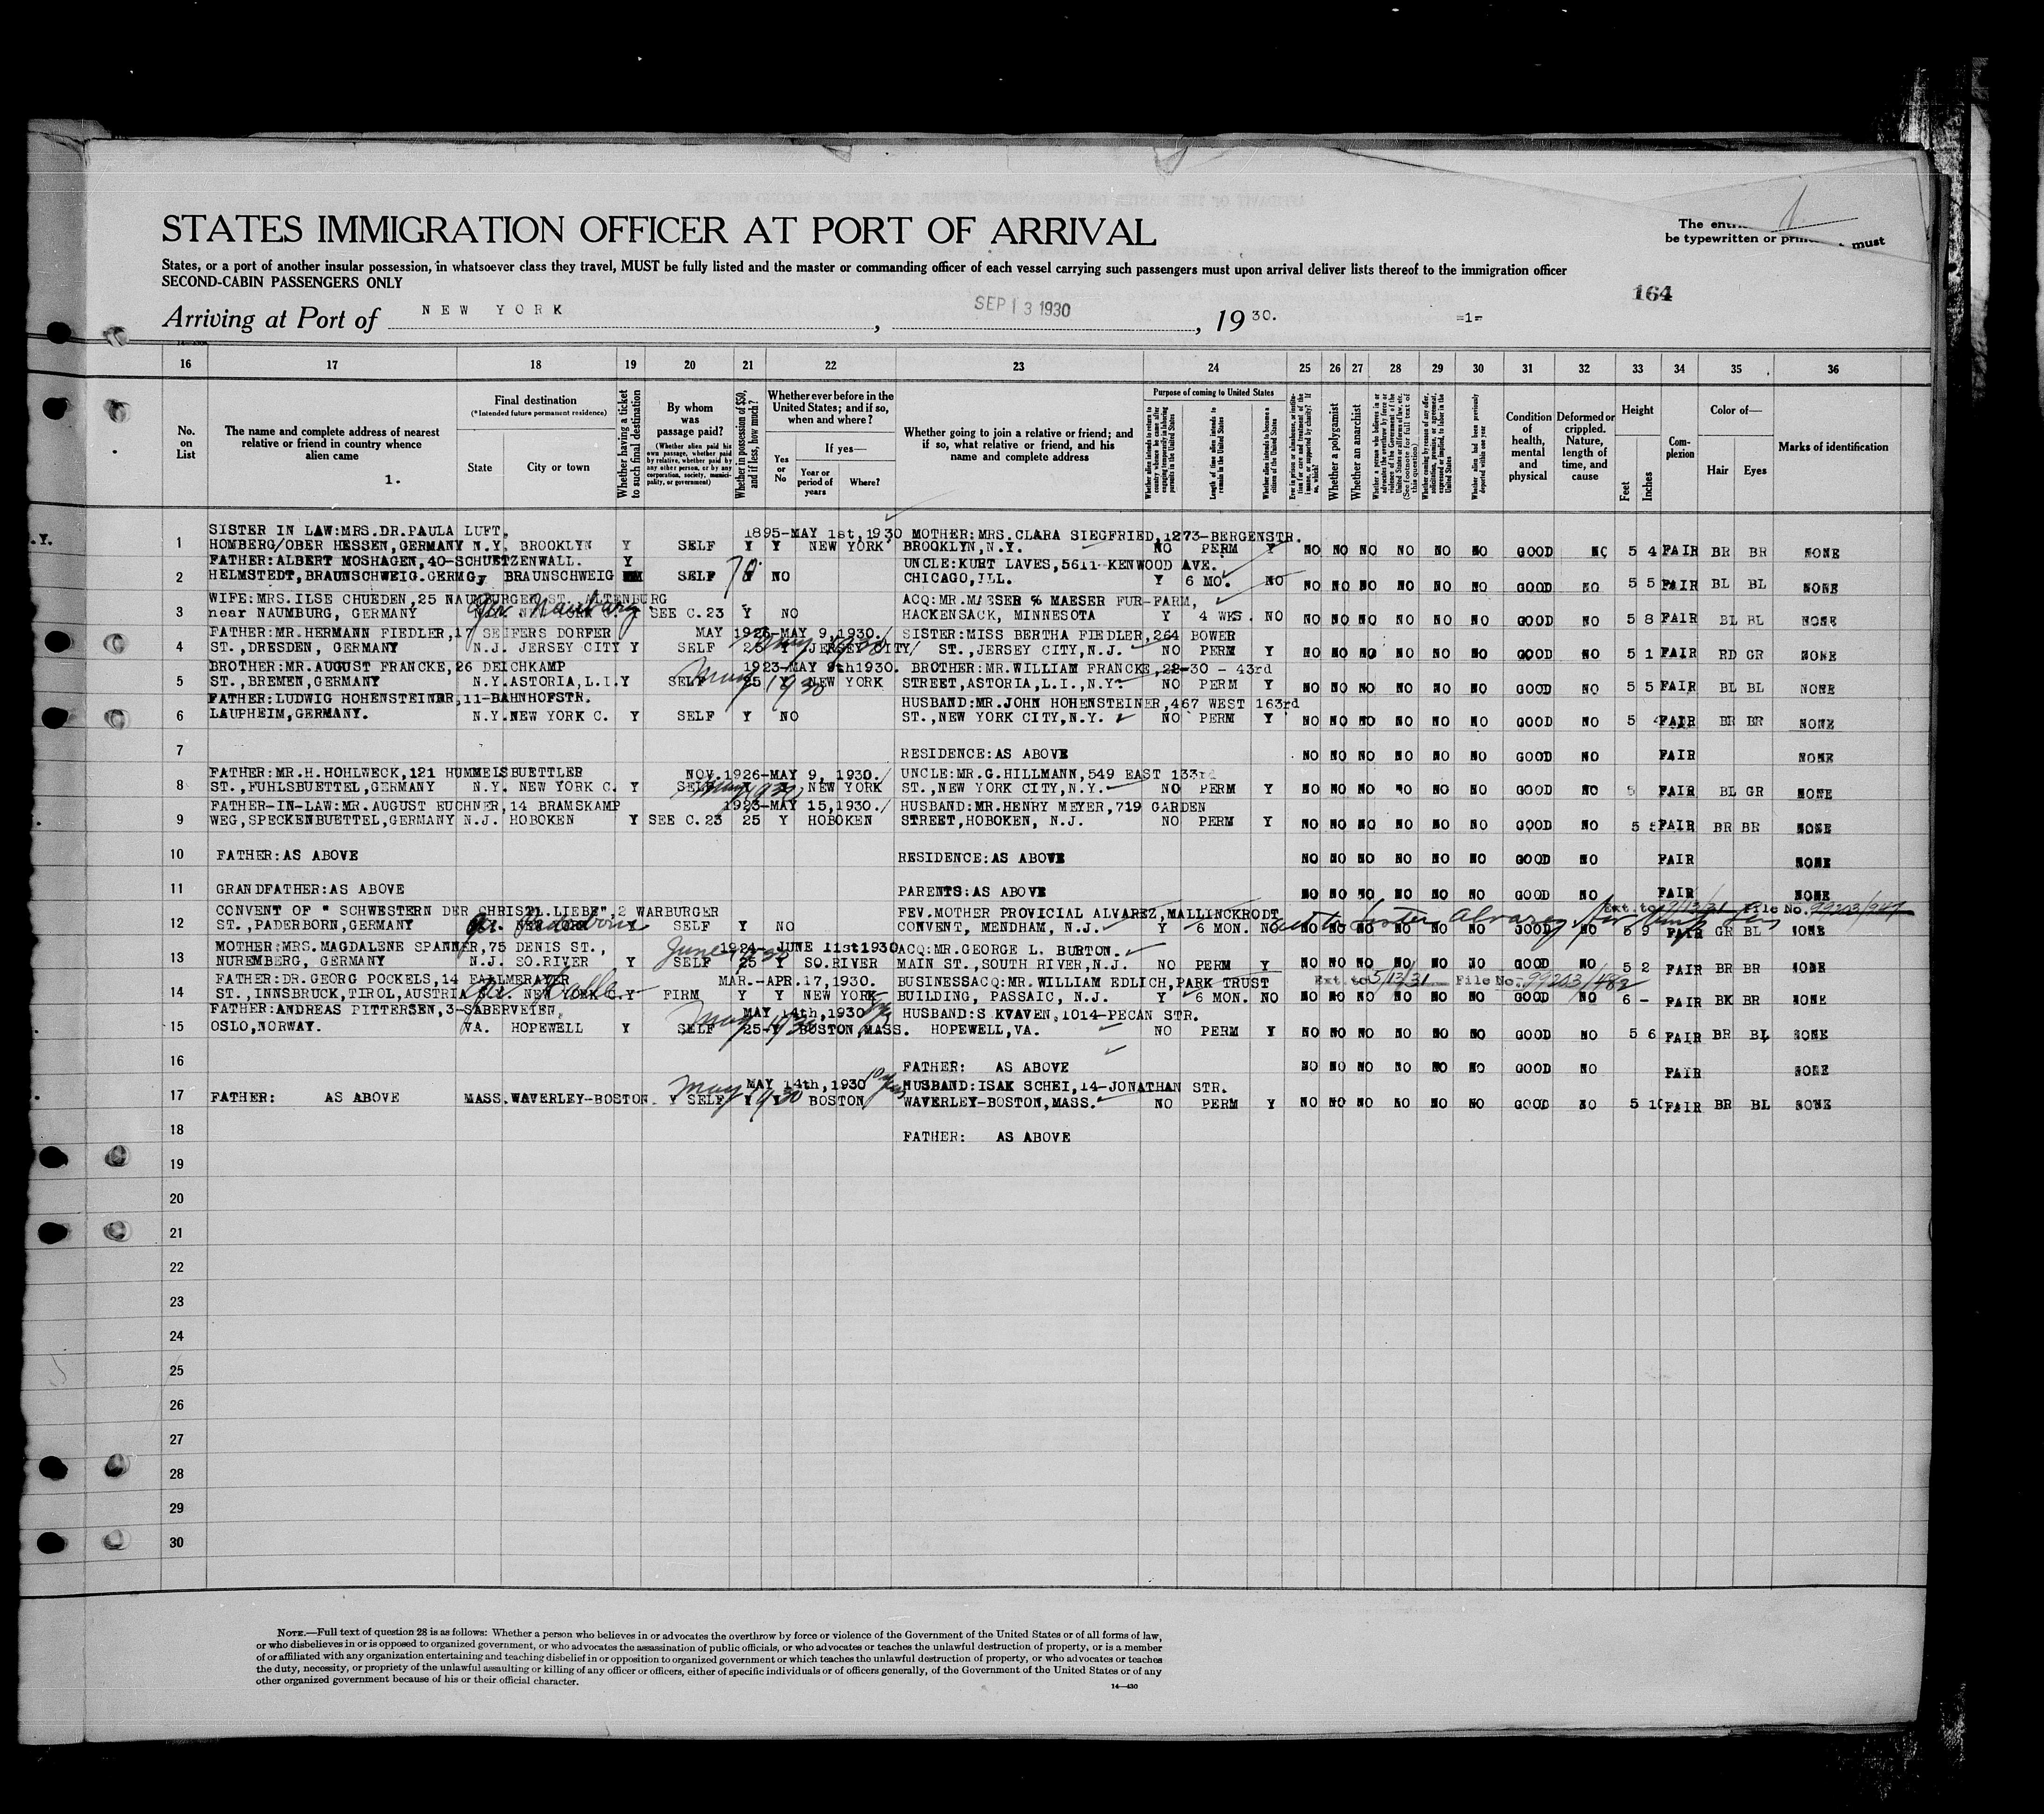 STATES IMMIGRATION OFFICER AT PORT OF ARRIVAL
The
be typewritten or must
States, or a port of another insular possession, in whatsoever class they travel, MUST be fully listed and the master or commanding officer of each vessel carrying such passengers must upon arrival deliver lists thereof to the immigration officer
SECOND-CABIN PASSENGERS ONLY
164
Arriving at Port of NEW YORK, SEP 13 1930, 1930. =1=
16 17 18 19 20 21 22 23 24 25 26 27 28 29 30 31 32 33 34 35 36
No. on List
The name and complete address of nearest relative or friend in country whence alien came
1.
Final destination
(*Intended future permanent residence)
State
City or town
Whether having a ticket to such final destination
By whom was passage paid?
(Whether alien paid his own passage, whether paid by relative, whether paid by any other person, or by any corporation, society, municipality, or government)
Whether in possession of $50, and if less, how much?
Whether ever before in the United States; and if so, when and where?
Yes or No
If yes—
Year or period of years
Where?
Whether going to join a relative or friend; and if so, what relative or friend, and his name and complete address
Purpose of coming to United States
Whether alien intends to return to country whence he came after engaging temporarily in laboring pursuits in the United States
Length of time alien intends to remain in the United States
Whether alien intends to become a citizen of the United States
Whether a polygamist
Whether an anarchist
Condition of health, mental and physical
Deformed or crippled. Nature, length of time, and cause
Height
Feet
Inches
Complexion
Color of—
Hair
Eyes
Marks of identification
.Y.
SISTER IN LAW:MRS.DR.PAULA LUFT. 1895-MAY 1st,1930 MOTHER:MRS.CLARA SIEGFRIED,1273-BERGENSTR.
1 HOMBERG/OBER HESSEN,GERMANY N.Y. BROOKLYN Y SELF Y Y NEW YORK BROOKLYN,N.Y. NO PERM Y NO NO NO NO NO NO GOOD NO 5 4 FAIR BR BR NONE
FATHER:ALBERT MOSHAGEN,40-SCHUETZENWALL. Y UNCLE:KURT LAVES,5611-KENWOOD AVE.
2 HELMSTEDT,BRAUNSCHWEIG.GERMGy BRAUNSCHWEIG SELF Y NO CHICAGO,ILL. Y 6 MO. NO NO NO NO NO NO NO GOOD NO 5 5 FAIR BL BL NONE
WIFE:MRS.ILSE CHUEDEN,25 NAUMBURGER ST. ALTENBURG ACQ:MR.MAESER % MAESER FUR-FARM,
3 near NAUMBURG, GERMANY Ger. Naumburg Y SEE C.23 Y NO HACKENSACK, MINNESOTA Y 4 WKS. NO NO NO NO NO NO NO GOOD NO 5 8 FAIR BL BL NONE
FATHER:MR.HERMANN FIEDLER,17 SEIFERS DORFER MAY 1926-MAY 9,1930. SISTER:MISS BERTHA FIEDLER,264 BOWER
4 ST.,DRESDEN, GERMANY N.J. JERSEY CITY Y SELF 25 Y JERSEY CITY ST.,JERSEY CITY,N.J. NO PERM Y NO NO NO NO NO NO GOOD NO 5 1 FAIR RD GR NONE
May 1930
BROTHER:MR.AUGUST FRANCKE,26 DEICHKAMP 1923-MAY 9th1930. BROTHER:MR.WILLIAM FRANCKE,22-30 - 43rd
5 ST.,BREMEN,GERMANY N.Y.ASTORIA,L.I.Y SELF 25 Y NEW YORK STREET,ASTORIA,L.I.,N.Y. NO PERM Y NO NO NO NO NO NO GOOD NO 5 5 FAIR BL BL NONE
May 1930
FATHER:LUDWIG HOHENSTEINER,11-BAHNHOFSTR. HUSBAND:MR.JOHN HOHENSTEINER,467 WEST 163rd
6 LAUPHEIM,GERMANY. N.Y.NEW YORK C. Y SELF Y NO ST.,NEW YORK CITY,N.Y. NO PERM Y NO NO NO NO NO NO GOOD NO 5 FAIR BR BR NONE
7 RESIDENCE:AS ABOVE NO NO NO NO NO NO GOOD NO FAIR NONE
FATHER:MR.H.HOHLWECK,121 HUMMELSBUETTLER NOV.1926-MAY 9, 1930. UNCLE:MR.G.HILLMANN,549 EAST 133rd
8 ST.,FUHLSBUETTEL,GERMANY N.Y. NEW YORK C. Y SELF Y Y NEW YORK ST.,NEW YORK CITY,N.Y. NO PERM Y NO NO NO NO NO NO GOOD NO 5 FAIR BL GR NONE
May 1930
FATHER-IN-LAW:MR.AUGUST EUCHNER,14 BRAMSKAMP 1923-MAY 15,1930. HUSBAND:MR.HENRY MEYER,719 GARDEN
9 WEG,SPECKENBUETTEL,GERMANY N.J. HOBOKEN Y SEE C.23 25 Y HOBOKEN STREET,HOBOKEN, N.J. NO PERM Y NO NO NO NO NO NO GOOD NO 5 FAIR BR BR NONE
10 FATHER:AS ABOVE RESIDENCE:AS ABOVE NO NO NO NO NO NO GOOD NO FAIR NONE
11 GRANDFATHER:AS ABOVE PARENTS:AS ABOVE NO NO NO NO NO NO GOOD NO FAIR NONE
CONVENT OF " SCHWESTERN DER CHRISTL.LIEBE",2 WARBURGER FEV.MOTHER PROVICIAL ALVAREZ,MALLINCKRODT Ext. to 9/13/31 File No. 99203/947
12 ST.,PADERBORN,GERMANY Ger. Paderborn Y SELF Y NO CONVENT, MENDHAM, N.J. Y 6 MON. NO NO NO NO NO NO NO GOOD NO 5 9 FAIR GR BL NONE
MOTHER:MRS.MAGDALENE SPANNER,75 DENIS ST., 1924- JUNE 11st1930 ACQ:MR.GEORGE L. BURTON.
13 NUREMBERG, GERMANY N.J. SO.RIVER Y SELF 25 Y SO.RIVER MAIN ST.,SOUTH RIVER,N.J. NO PERM Y NO NO NO NO NO NO GOOD NO 5 2 FAIR BR BR NONE
June 1930
FATHER:DR.GEORG POCKELS,14 FALLMERAYER MAR.-APR.17,1930. BUSINESSACQ:MR.WILLIAM EDLICH,PARK TRUST Ext. to 5/13/31 File No. 99203/482
14 ST.,INNSBRUCK,TIROL,AUSTRIA NEW YORK C. Y FIRM Y Y NEW YORK BUILDING, PASSAIC, N.J. Y 6 MON. NO NO NO NO NO NO NO GOOD NO 6 - FAIR BK BR NONE
FATHER:ANDREAS PITTERSEN,3-SABERVEIEN, MAY 14th,1930 HUSBAND:S KVAVEN,1014-PECAN STR.
15 OSLO,NORWAY. VA. HOPEWELL Y SELF 25-Y BOSTON,MASS. HOPEWELL,VA. NO PERM Y NO NO NO NO NO NO GOOD NO 5 6 FAIR BR BL NONE
May 1930
16 FATHER: AS ABOVE NO NO NO NO NO NO GOOD NO FAIR NONE
MAY 14th,1930 HUSBAND:ISAK SCHEI,14-JONATHAN STR.
17 FATHER: AS ABOVE MASS.WAVERLEY-BOSTON. Y SELF Y Y BOSTON WAVERLEY-BOSTON,MASS. NO PERM Y NO NO NO NO NO NO GOOD NO 5 10 FAIR BR BL NONE
May 1930
18 FATHER: AS ABOVE
19
20
21
22
23
24
25
26
27
28
29
30
NOTE.—Full text of question 28 is as follows: Whether a person who believes in or advocates the overthrow by force or violence of the Government of the United States or of all forms of law,
or who disbelieves in or is opposed to organized government, or who advocates the assassination of public officials, or who advocates or teaches the unlawful destruction of property, or is a member
of or affiliated with any organization entertaining and teaching disbelief in or opposition to organized government or which teaches the unlawful destruction of property, or who advocates or teaches
the duty, necessity, or propriety of the unlawful assaulting or killing of any officer or officers, either of specific individuals or of officers generally, of the Government of the United States or of any
other organized government because of his or their official character.
14—430